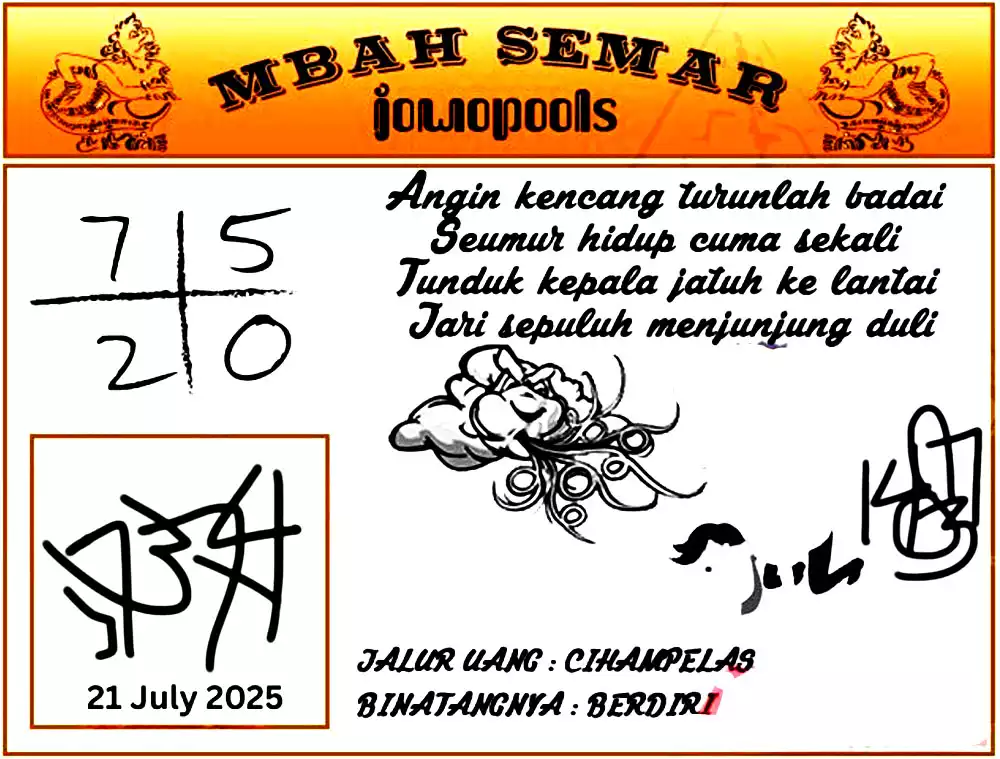 MBAH SEMAR
jowopools
7 5
2 0
Angin kencang turunlah badai
Seumur hidup cuma sekali
Tunduk kepala jatuh ke lantai
Jari sepuluh menjunjung duli
21 July 2025
JALUR UANG : CIHAMPELAS
BINATANGNYA : BERDIRI